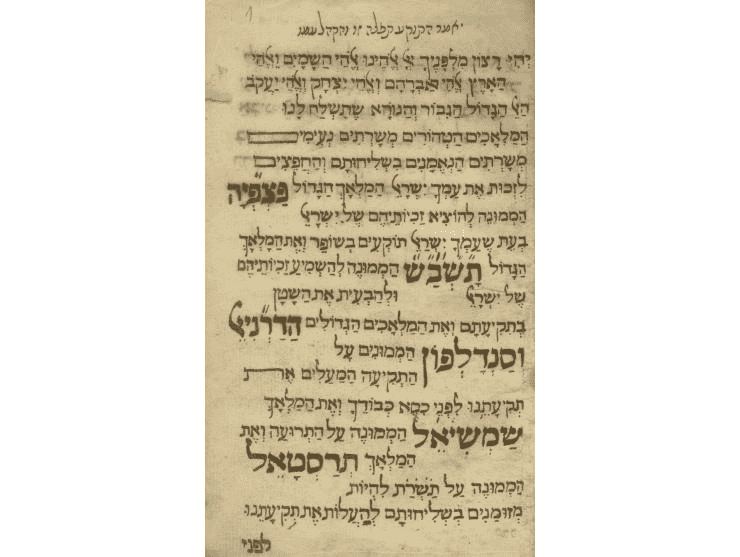 יאמר התוקע תפלה זו והקהל עמו
יְהִי רָצוֹן מִלְּפָנֶיךָ יְיָ אֱלֹהֵינוּ אֱלֹהֵי הַשָּׁמַיִם וֵאלֹהֵי
הָאָרֶץ אֱלֹהֵי אַבְרָהָם וֵאלֹהֵי יִצְחָק וֵאלֹהֵי יַעֲקֹב
הָאֵל הַגָּדוֹל הַגִּבּוֹר וְהַנּוֹרָא שֶׁתִּשְׁלַח לָנוּ
הַמַּלְאָכִים הַטְּהוֹרִים מְשָׁרְתִים נְעִימִים
מְשָׁרְתִים הַנֶּאֱמָנִים בִּשְׁלִיחוּתָם וְהַחֲפֵצִים
לְזַכּוֹת אֶת עַמְּךָ יִשְׂרָאֵל הַמַּלְאָךְ הַגָּדוֹל פַּצְפְּצִיָּה
הַמְמוּנֶּה לְהוֹצִיא זְכִיּוֹתֵיהֶם שֶׁל יִשְׂרָאֵל
בְּעֵת שֶׁעַמְּךָ יִשְׂרָאֵל תּוֹקְעִים בְּשׁוֹפָר וְאֶת הַמַּלְאָךְ
הַגָּדוֹל תָּשְׁבַּ״שׁ הַמְמוּנֶּה לְהַשְׁמִיעַ זְכִיּוֹתֵיהֶם
שֶׁל יִשְׂרָאֵל וּלְהַבְעִית אֶת הַשָּׂטָן
בִּתְקִיעָתָם וְאֶת הַמַּלְאָכִים הַגְּדוֹלִים הַדַּרְנִיאֵל
וְסַנְדַלְפוֹן הַמְמוּנִּים עַל
הַתְּקִיעָה הַמַּעֲלִים אֶת
תְּקִיעָתֵנוּ לִפְנֵי כִסֵּא כְּבוֹדֶךָ וְאֶת הַמַּלְאָךְ
שַׁמְשִׁיאֵל הַמְמוּנֶּה עַל הַתְּרוּעָה וְאֶת
הַמַּלְאָךְ תְרַסְטָאֵל
הַמְמוּנֶּה עַל תַּשְׁרַ״ת לִהְיוֹת
מְזוּמָּנִים בִּשְׁלִיחוּתָם לְהַעֲלוֹת אֶת תְּקִיעָתֵנוּ
לִפְנֵי